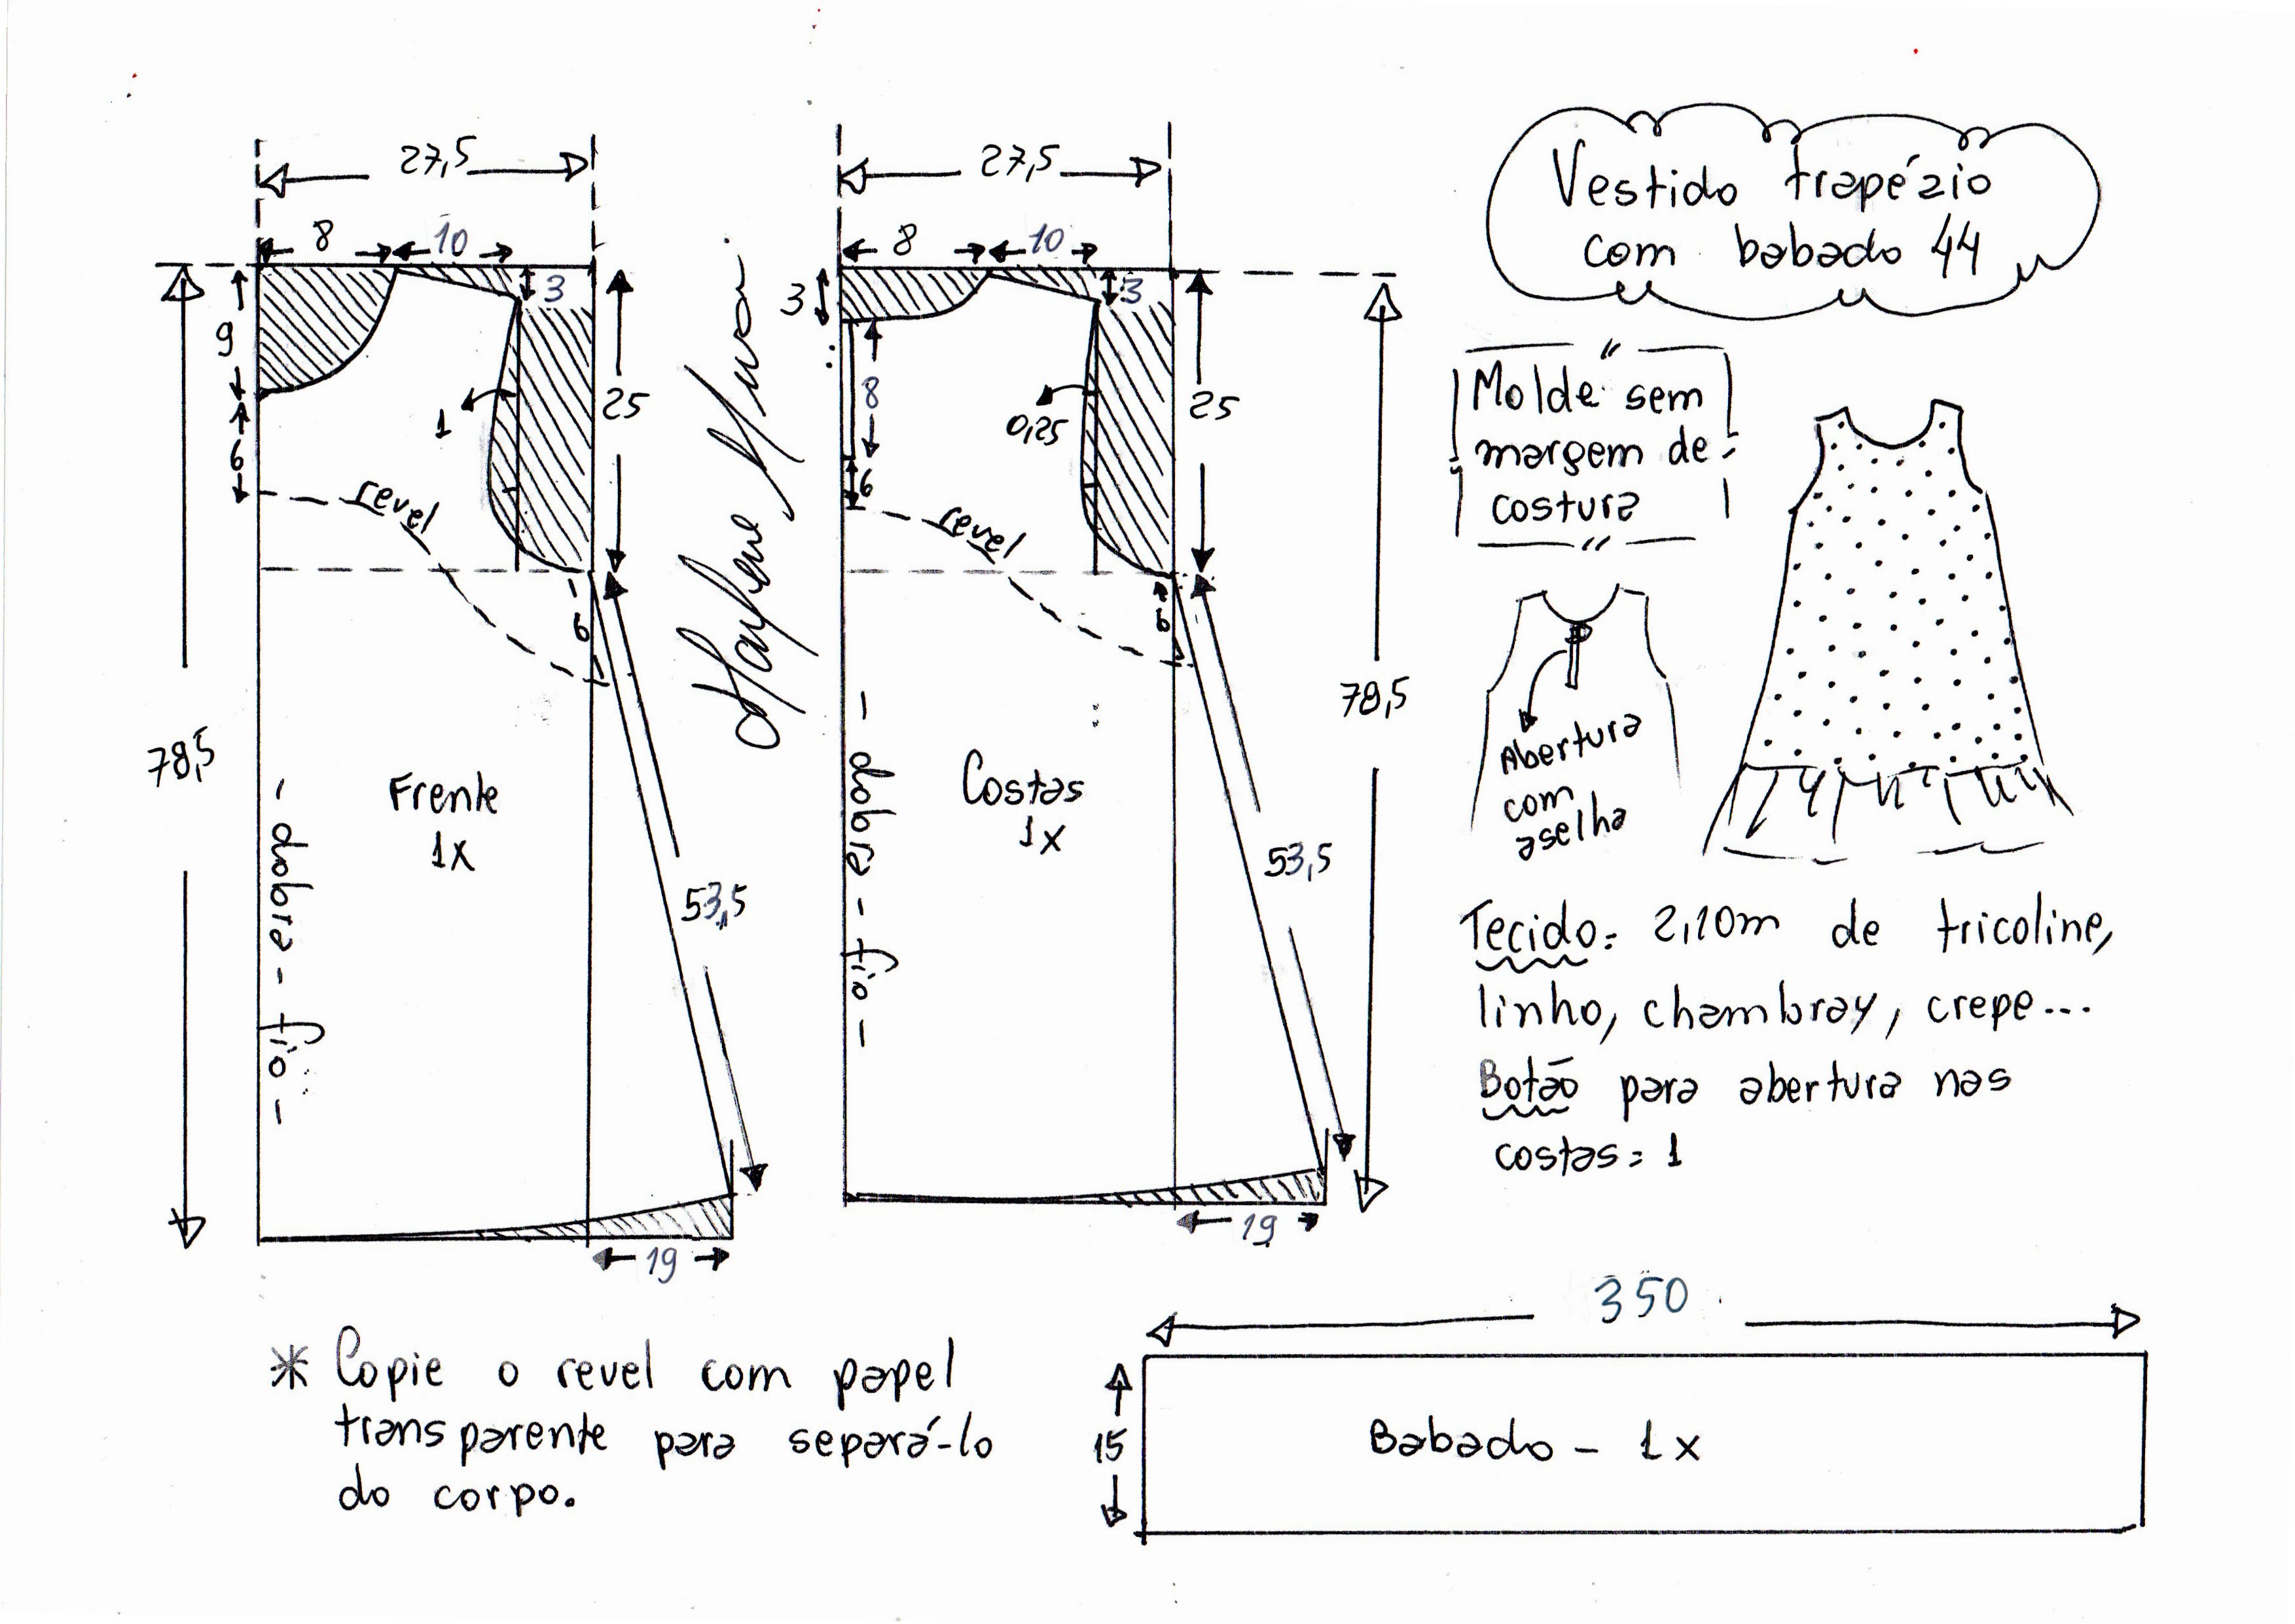 Vestido trapézio
com babado 44
Molde sem
margem de
costura
27,5
8
10
3
9
6
1
25
revel
6
78,5
Frente
1x
- dobra - fio -
53,5
19
27,5
8
10
3
3
8
6
0,25
25
revel
6
78,5
Costas
1x
- dobra - fio -
53,5
19
Abertura
com
aselha
Tecido: 2,10m de tricoline,
linho, chambray, crepe...
Botão para abertura nas
costas = 1
* Copie o revel com papel
transparente para separá-lo
do corpo.
350
15
Babado - 1x